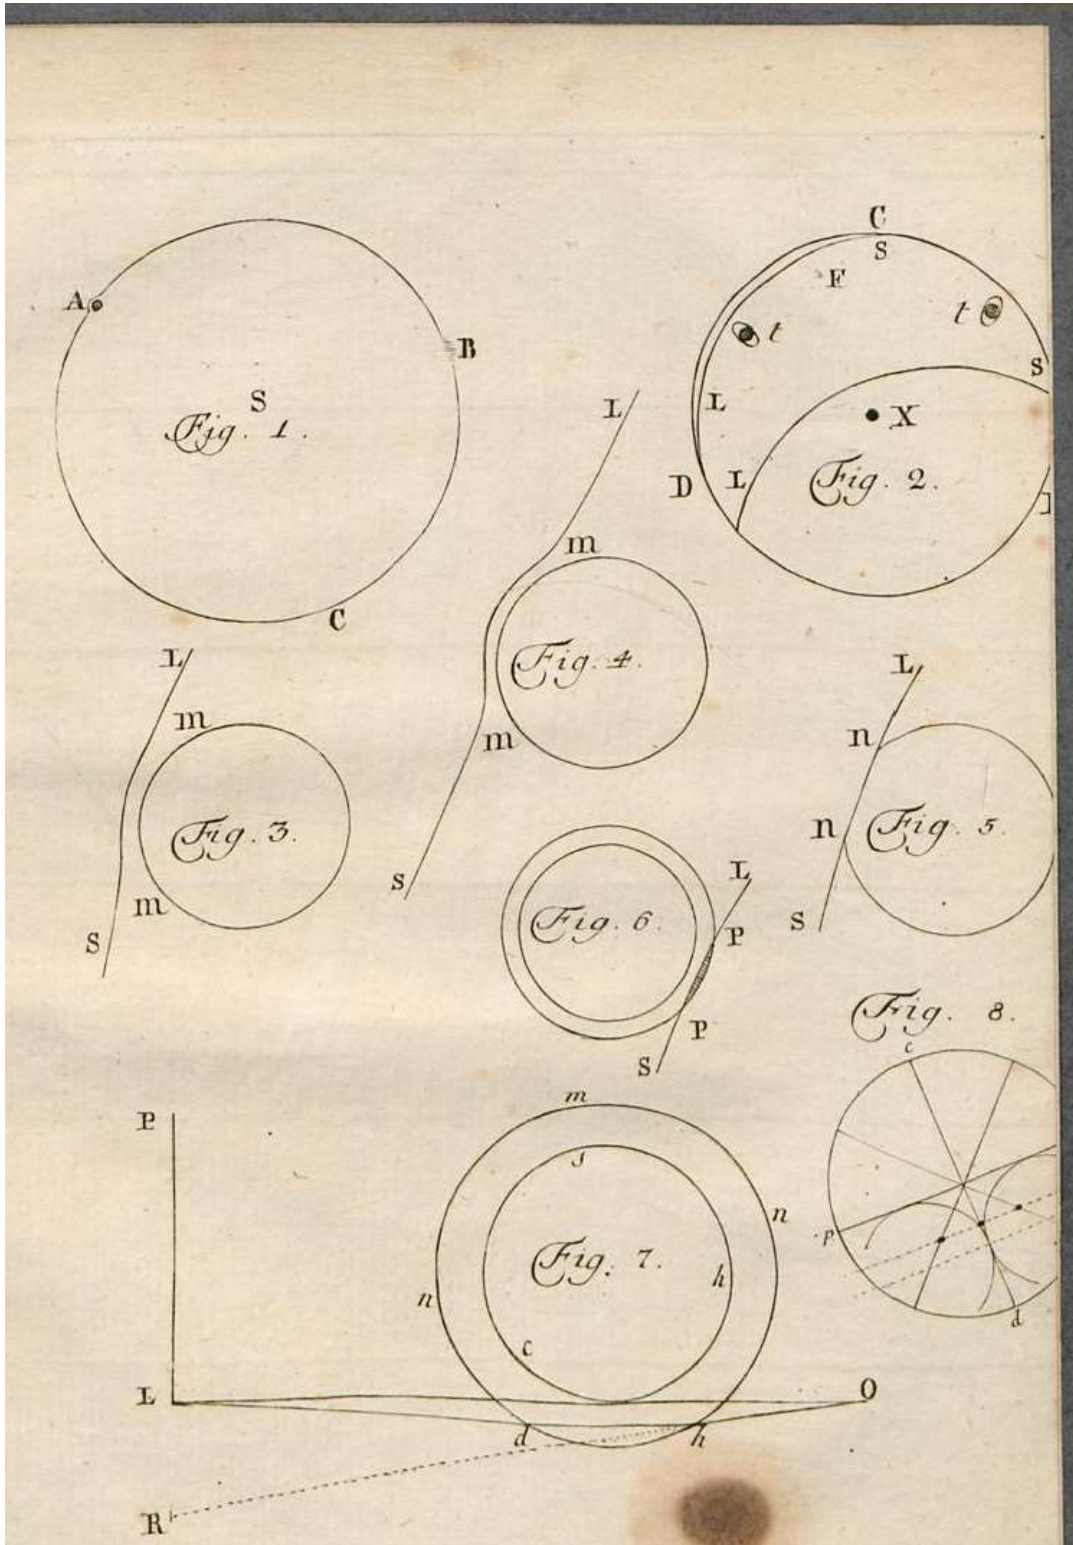 A
B
S
Fig. 1.
C
C
S
F
t
t
S
L
X
D
L
Fig. 2.
L
m
Fig. 4.
m
S
L
m
Fig. 3.
m
S
L
n
n
Fig. 5.
S
L
Fig. 6.
P
P
S
Fig. 8.
c
p
d
P
m
s
n
Fig. 7.
h
n
c
L
O
d
h
R